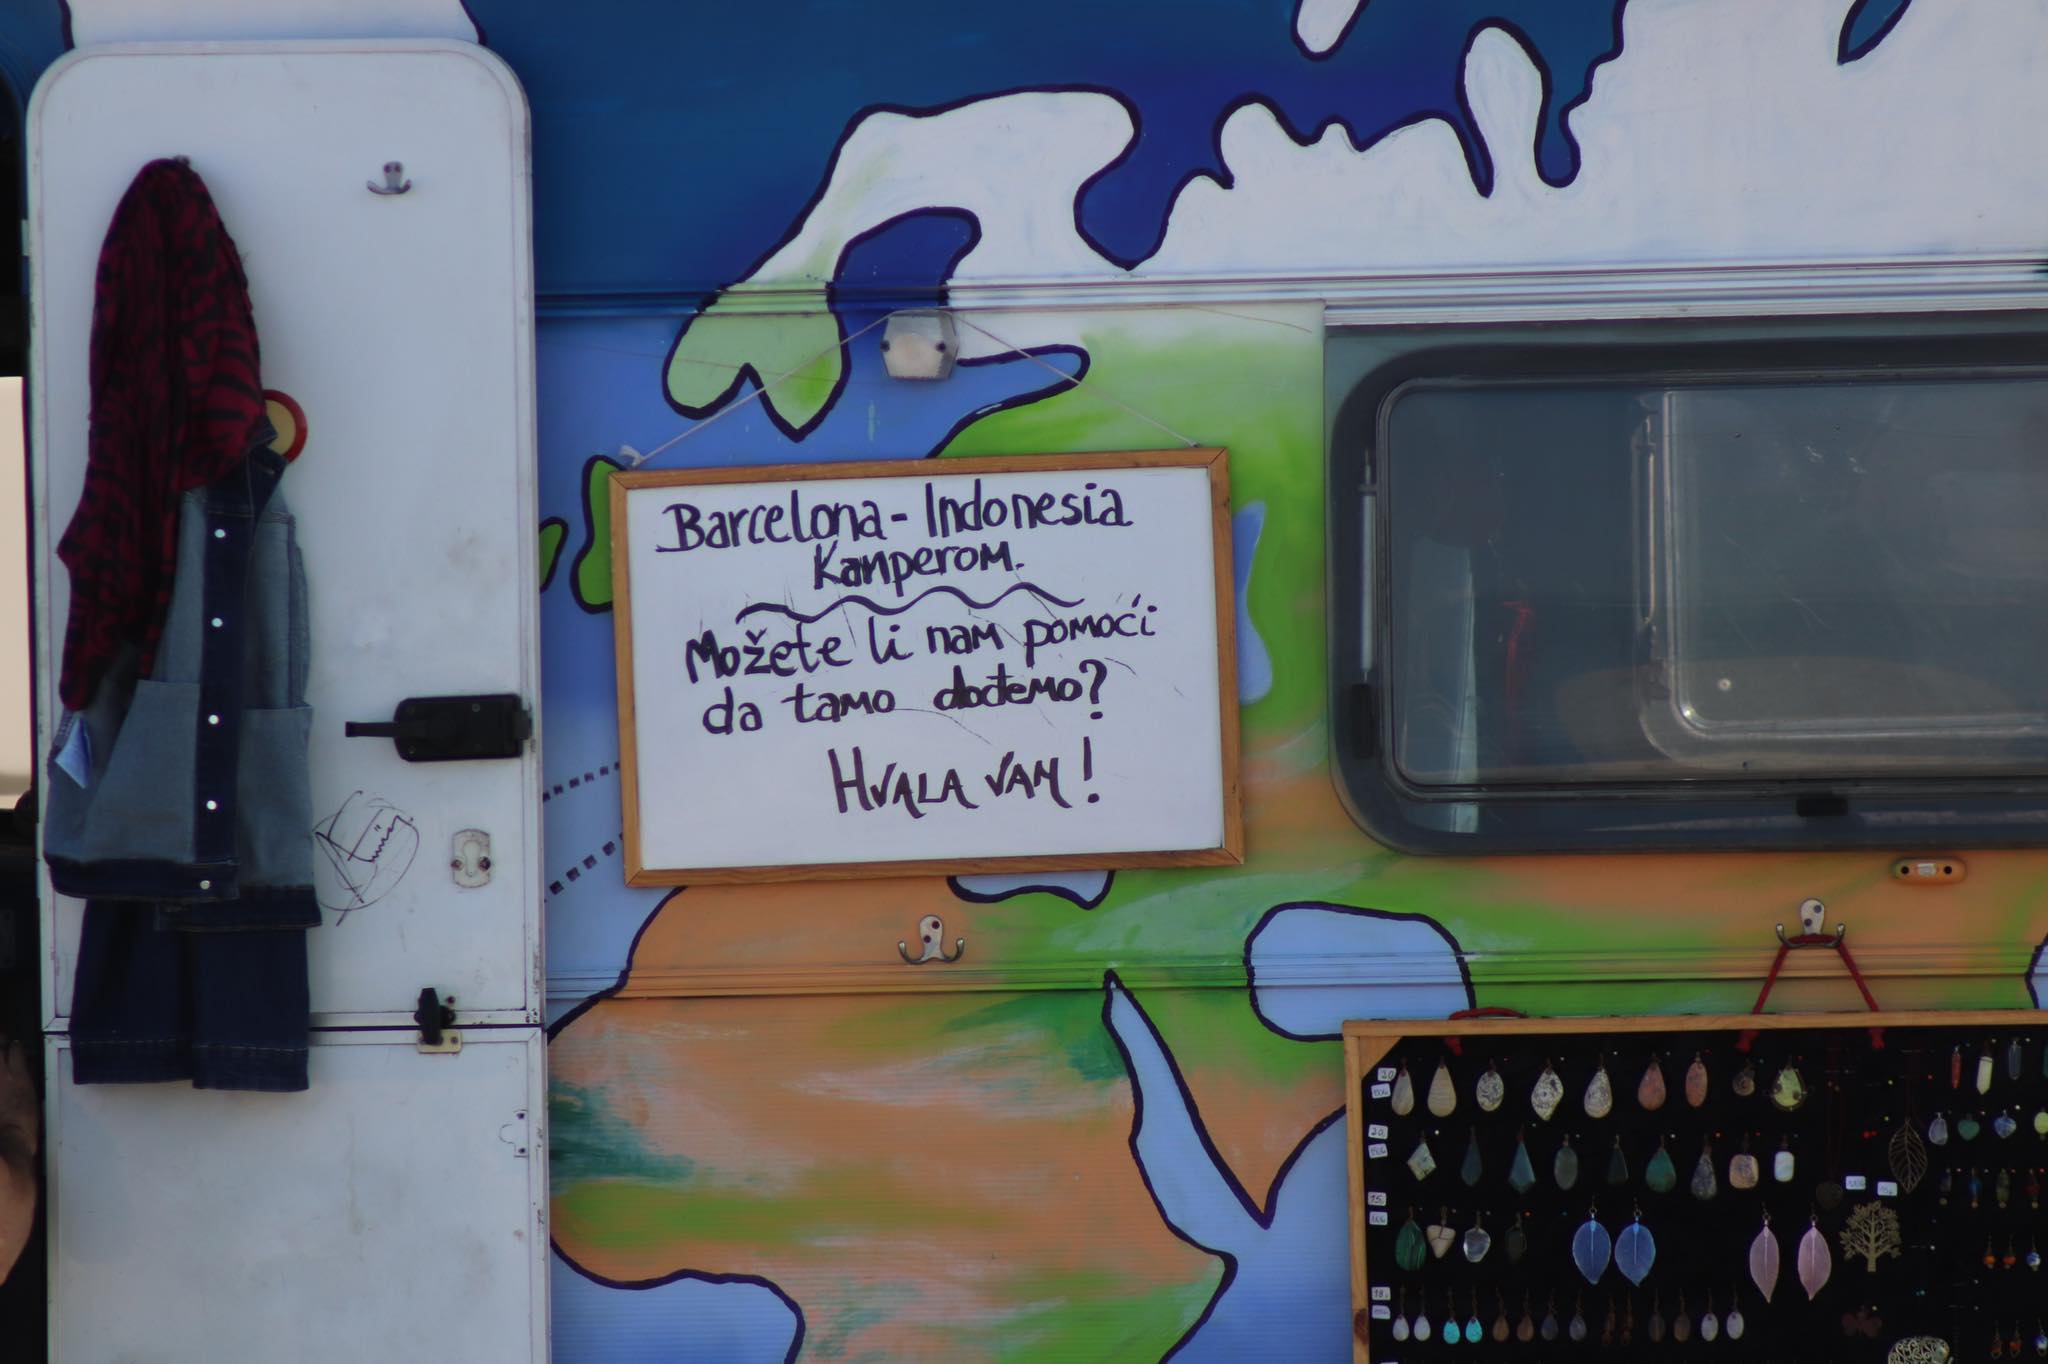 Barcelona - Indonesia
Kamperom.
Možete li nam pomoći
da tamo dođemo?
Hvala vam!
20
15